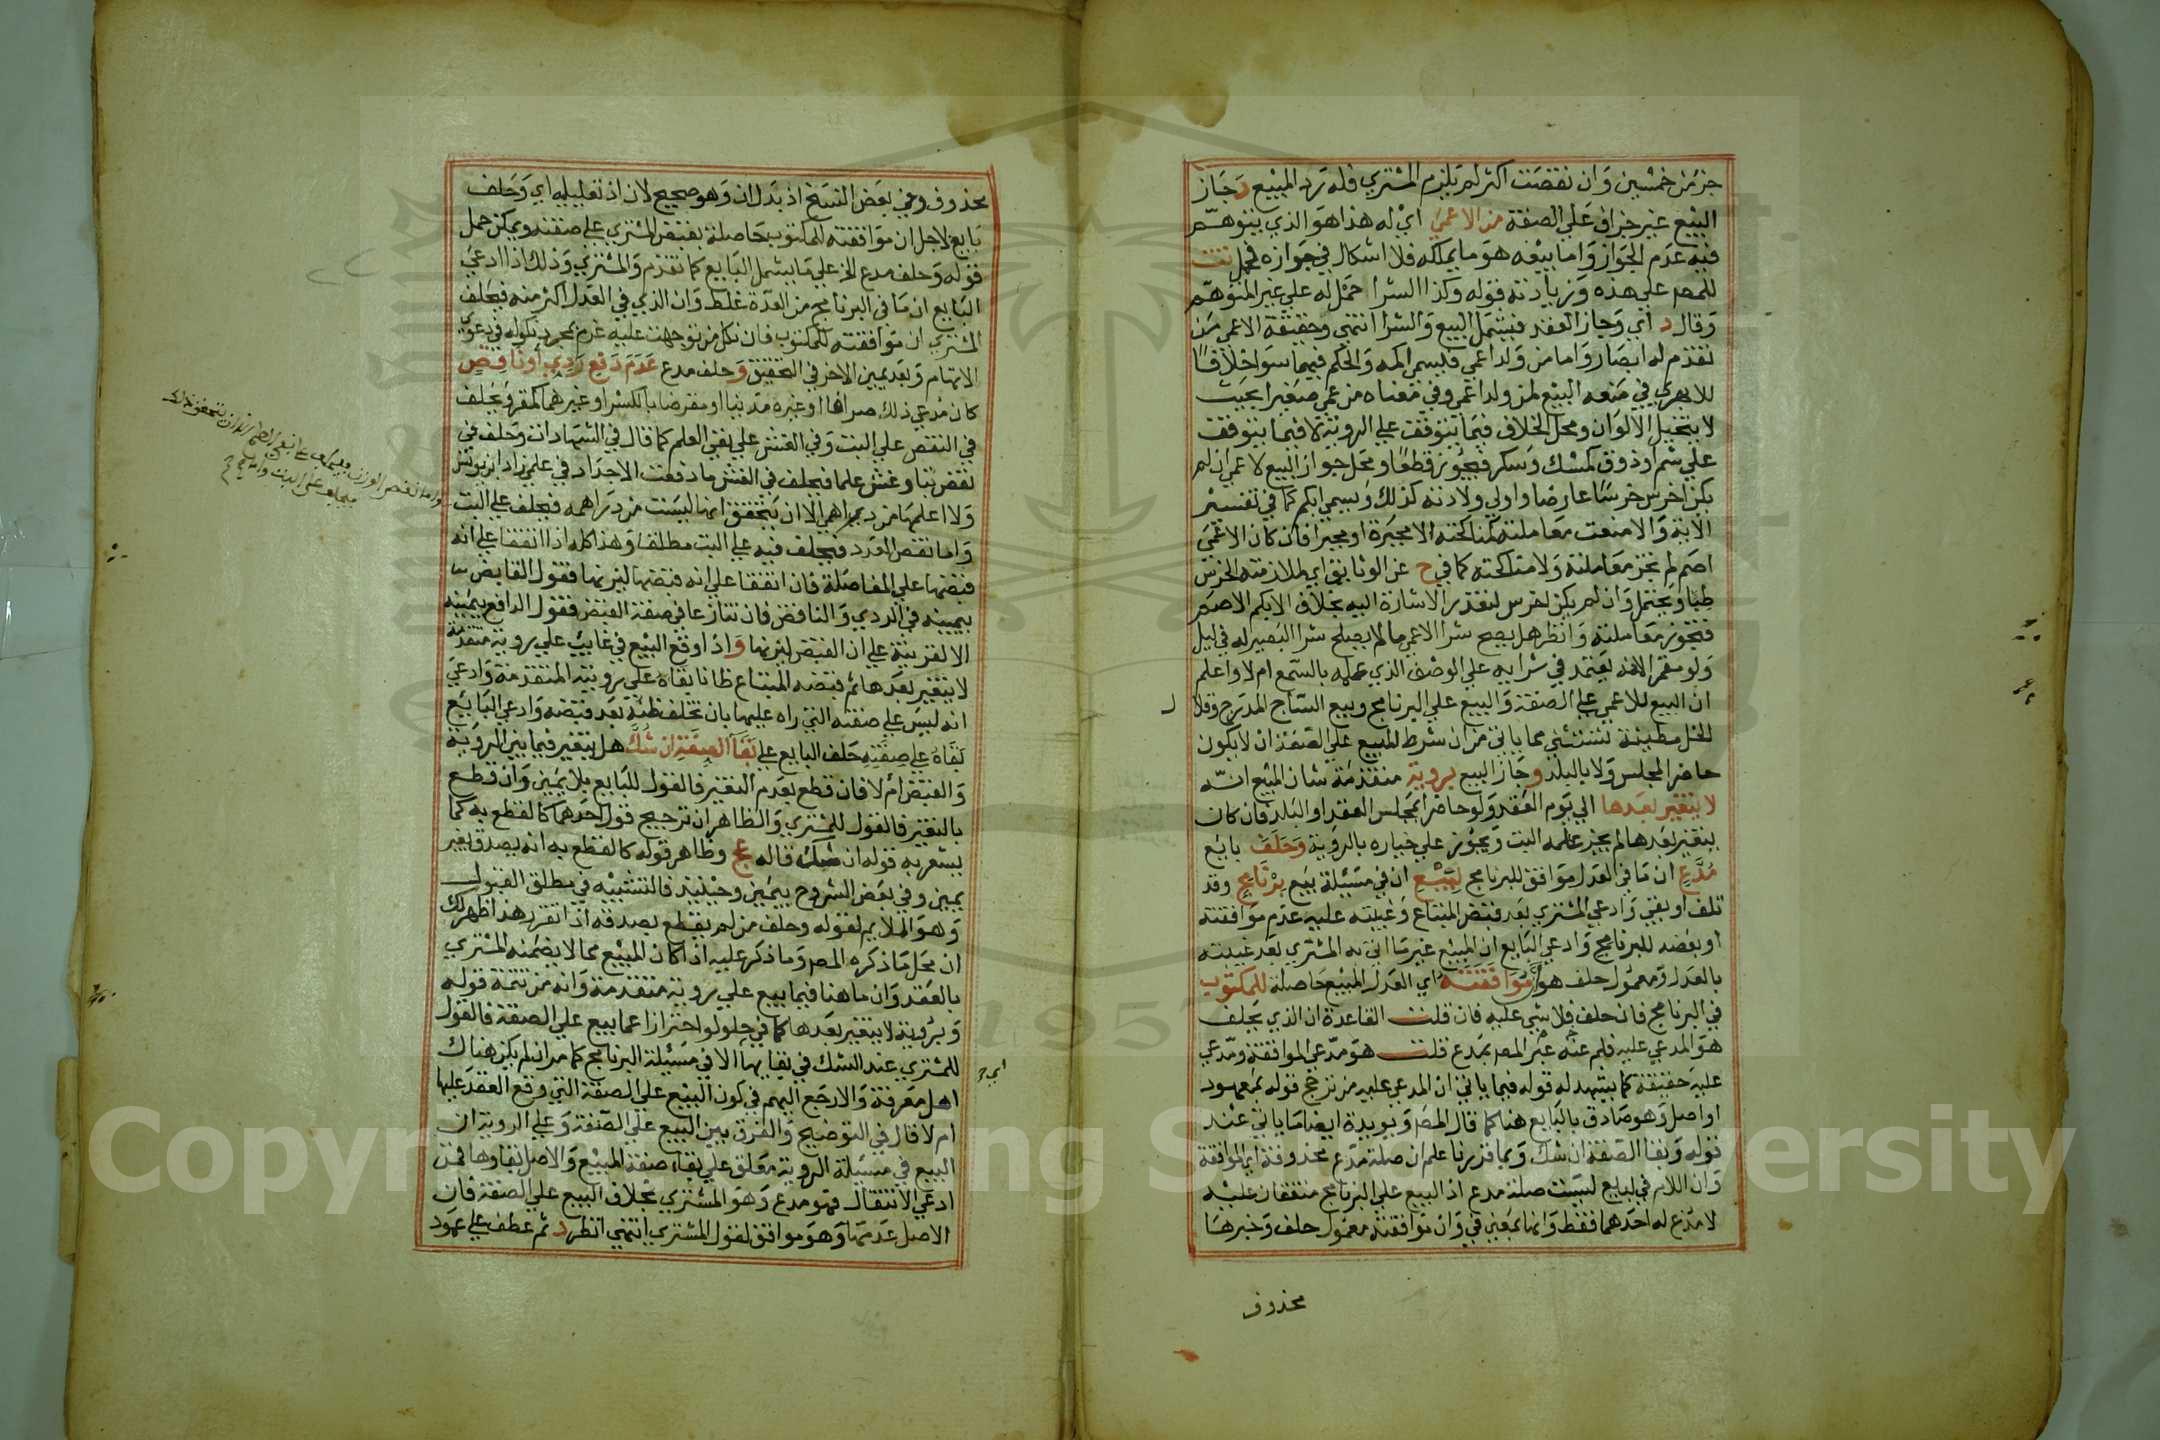 جزء من خمسين وان نقصت اكثر لم يلزم المشتري فله رد المبيع وجاز
البيع عبر جزاف علي الصفة من الاعمي اي له هذا هو الذي يتوهم
فيه عدم الجواز واما بيعه هو ما يملكه فلا اشكال في جوازه فحمل تت
للمص علي هذه وزيادته قوله وكذا الشرا حمل له علي غير المتوهم
وقال د اي وجاز العقد فيشمل البيع والشرا انتهي وحقيقة الاعمي من
تقدم له ابصار واما من ولد اعمي فليسمي اكمه والحكم فيهما سوا خلافا
للابهري في منعه البيع لمن ولد اعمي وفي معناه من عمي صغيرا بحيث
لا يتخيل الالوان ومحل الخلاف فيما يتوقف علي الروية لا فيما يتوقف
علي شم او ذوق كمسك وسكر فيجوز قطعا ومحل جواز البيع لاعمي ان لم
يكن اخرس خرسا عارضا واولي ولادته كذلك ويسمي ابكم كما في تفسير
الاية والا منعت معاملته كمناكحته الا مجبرة او مجبرا فان كان الاعمي
اصم لم تجز معاملته ولا مناكحته كما في ح عن الوثايق اي لملازمته الخرس
طبا ويحتمل وان لم يكن اخرس لتعذر الاشارة اليه بخلاف الابكم الاصم
فتجوز معاملته وانظر هل يصح شرا الاعمي ما لم يصلح شرا البصير له في ليل
ولو مقمر الانه يعتمد في شرايه علي الوصف الذي علمه بالسمع ام لا واعلم
ان البيع للاعمي علي الصفة والبيع علي البرنامج وبيع الساج المدرج وقلال
الخل مطينة تستثني مما ياتي من ان شرط المبيع علي الصفة ان لا يكون
حاضر المجلس ولا بالبلد وجاز البيع بروية متقدمة شان المبيع انه
لا يتغير بعدها الي يوم العقد ولو حاضرا مجلس العقد او البلد فان كان
يتغير بعدها لم يجز علي البت ويجوز علي خياره بالروية وحلف بايع
مدع ان ما في العدل موافق للبرنامج لبيع ان في مسيلة بيع برنامج وقد
تلف او بقي وادعي المشتري بعد قبض المبتاع وغيبته عليه عدم موافقته
او بعضه للبرنامج وادعي البايع ان المبيع غير ما اتي به المشتري بعد غيبته
بالعدل ومعمول حلف هو ان موافقته اي العدل المبيع حاصلة للمكتوب
في البرنامج فان حلف فلا شي عليه فان قلت القاعدة ان الذي يحلف
هو المدعي عليه فلم عنه عبر المص بمدع قلت هو مدعي الموافقة ومدعي
عليه حقيقة كما يشهد له قوله فيما ياتي ان المدعي عليه من ترجح قوله بمعهود
او اصل وهو صادق بالبايع هنا كما قال المص ويويده ايضا ما ياتي عند
قوله وبقا الصفة ان شك وبما قررنا علم ان صلة مدع محذوفة اي الموافقة
وان اللام في لبيع ليست صلة مدع اذ البيع علي البرنامج متفقان عليه
لا مدع له احدهما فقط وانها بمعني في وان موافقته معمول حلف وخبرها
محذوف
محذوف وفي بعض النسخ اذ بدل ان وهو صحيح لان اذ تعليلية اي وحلف
بايع لاجل ان موافقته للمكتوب حاصلة بقبض المشتري علي صفته ويمكن حمل
قوله وحلف مدع الخ علي ما يشمل البايع كما تقدم والمشتري وذلك اذا ادعي
البايع ان ما في البرنامج من العدة غلط وان الذي في العدل اكثر منه فيحلف
المشتري ان موافقته للمكتوب فان نكل من توجهت عليه غرم بمجرد نكوله في دعوي
الاتهام وبعد يمين الاخر في التحقيق وحلف مدع عدم دفع ردي او ناقص
كان مدعي ذلك صرافا او غيره مدينا او مقرضا بالكسر او غيرهما كمقر ويحلف
في النقص علي البت وفي الغش علي نفي العلم كما قال في الشهادات وحلف في
نقص بتا وغش علما فيحلف في الغش ما دفعت الاجدادا في علمي زاد ابن يونس
ولا اعلمها من دراهمي الا ان يتحقق انها ليست من دراهمه فيحلف علي البت
واما نقص العدد فيحلف فيه علي البت مطلقا وهذا كله اذا اتفقا علي انه
قبضها علي المفاصلة فان اتفقا علي انه قبضها ليزنها فقول القابض
بيمينه في الردي والناقص فان تنازعا في صفة القبض فقول الدافع بيمينه
الا لقرينة علي ان القبض ليزنها واذ اوقع البيع في غايب علي روية متقدمة
لا يتغير بعدها ثم قبضه المبتاع ظانا بقاه علي روية المتقدمة وادعي
انه ليس علي صفته التي راه عليها بان تخلف ظنه بعد قبضه وادعي البايع
بقاه علي صفته حلف البايع علي بقا الصفة ان شك هل يتغير فيما بين الروية
والقبض ام لا فان قطع بعدم التغير فالقول للبايع بلا يمين وان قطع
بالتغير فالقول للمشتري والظاهر ان ترجيح قول احدهما كالقطع به كما
يشعر به قوله ان شك قاله عج وظاهر قوله كالقطع به انه يصدق بغير
يمين وفي بعض الشروح بيمين وحينيذ فالتشبيه في مطلق القبول
وهو الملايم لقوله وحلف من لم يقطع بصدقه اذا تقرر هذا ظهر لك
ان محل ما ذكره المص وما ذكر عليه اذا كان المبيع مما لا يضمنه المشتري
بالعقد وان ما هنا فيما بيع علي روية متقدمة وانه من تتمة قوله
وبروية لا يتغير بعدها كما في حلولو احترازا عما بيع علي الصفة فالقول
للمشتري عند الشك في بقايها الا في مسيلة البرنامج كما مر ان لم يكن هناك
اهل معرفة والا رجع اليهم في كون البيع علي الصفة التي وقع العقد عليها
ام لا قال في التوضيح والفرق بين البيع علي الصفة وعلي الروية ان
البيع في مسيلة الروية معلق علي بقاء صفة المبيع والاصل بقاوها فمن
ادعي الانتقال فهو مدع وهو المشتري بخلاف البيع علي الصفة فان
الاصل عدمها وهو موافق لقول المشتري انتهي انظر د ثم عطف علي عمود
Copyright © King Saud University
1957